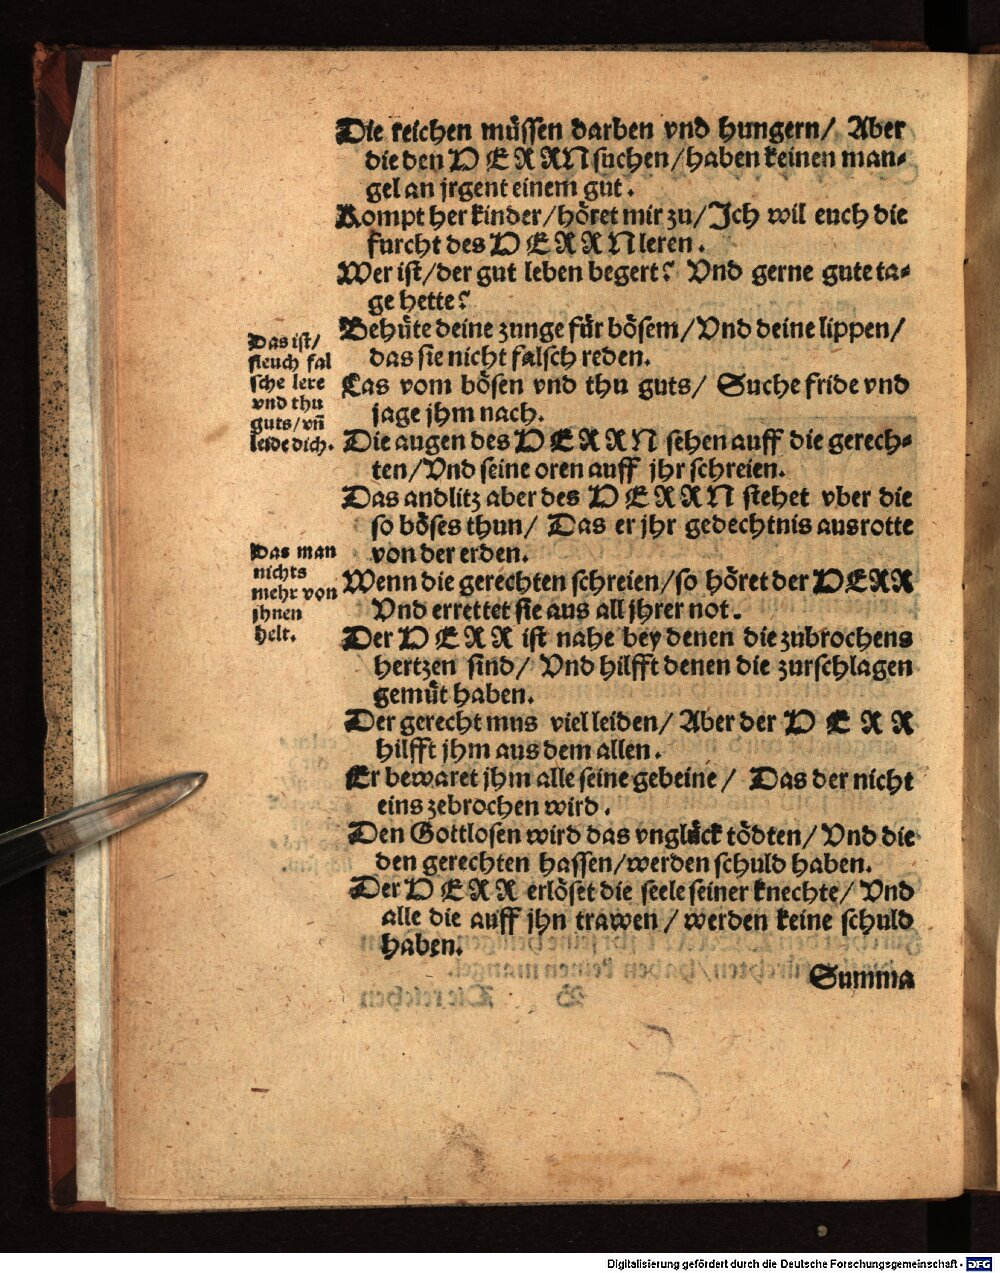 Die reichen müssen darben vnd hungern/ Aber
die den HERRN suchen/haben keinen man-
gel an jrgent einem gut.
Kompt her kinder/höret mir zu/Ich wil euch die
furcht des HERRN leren.
Wer ist/der gut leben begert? Vnd gerne gute ta-
ge hette?
Behüte deine zunge für bösem/Vnd deine lippen/
das sie nicht falsch reden.
Las vom bösen vnd thu guts/ Suche fride vnd
jage jhm nach.
Die augen des HERRN sehen auff die gerech-
ten/Vnd seine oren auff jhr schreien.
Das andlitz aber des HERRN stehet vber die
so böses thun/ Das er jhr gedechtnis ausrotte
von der erden.
Wenn die gerechten schreien/so höret der HERR
Vnd errettet sie aus all jhrer not.
Der HERR ist nahe bey denen die zubrochens
hertzen sind/ Vnd hilfft denen die zurschlagen
gemüt haben.
Der gerecht mus viel leiden/ Aber der HERR
hilfft jhm aus dem allen.
Er bewaret jhm alle seine gebeine/ Das der nicht
eins zebrochen wird.
Den Gottlosen wird das vnglück tödten/ Vnd die
den gerechten hassen/werden schuld haben.
Der HERR erlöset die seele seiner knechte/ Vnd
alle die auff jhn trawen/ werden keine schuld
haben.
Summa
Das ist/
fleuch fal
sche lere
vnd thu
guts/vñ
leide dich.
Das man
nichts
mehr von
jhnen
helt.
Digitalisierung gefördert durch die Deutsche Forschungsgemeinschaft - DFG